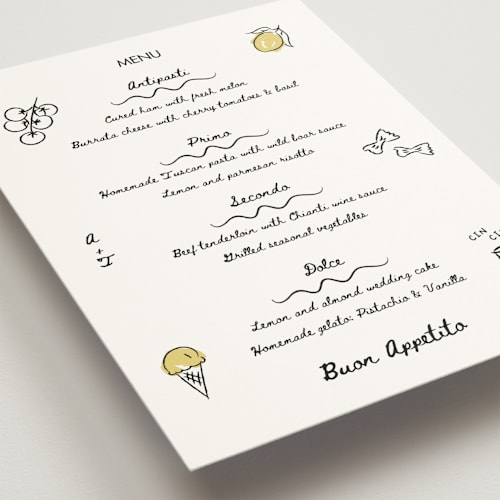 MENU
Antipasti
Cured ham with fresh melon
Burrata cheese with cherry tomatoes & basil
Primo
Homemade Tuscan pasta with wild boar sauce
Lemon and parmesan risotto
A + I
Secondo
Beef tenderloin with Chianti wine sauce
Grilled seasonal vegetables
CIN
CIN
Dolce
Lemon and almond wedding cake
Homemade gelato: Pistachio & Vanilla
Buon Appetito